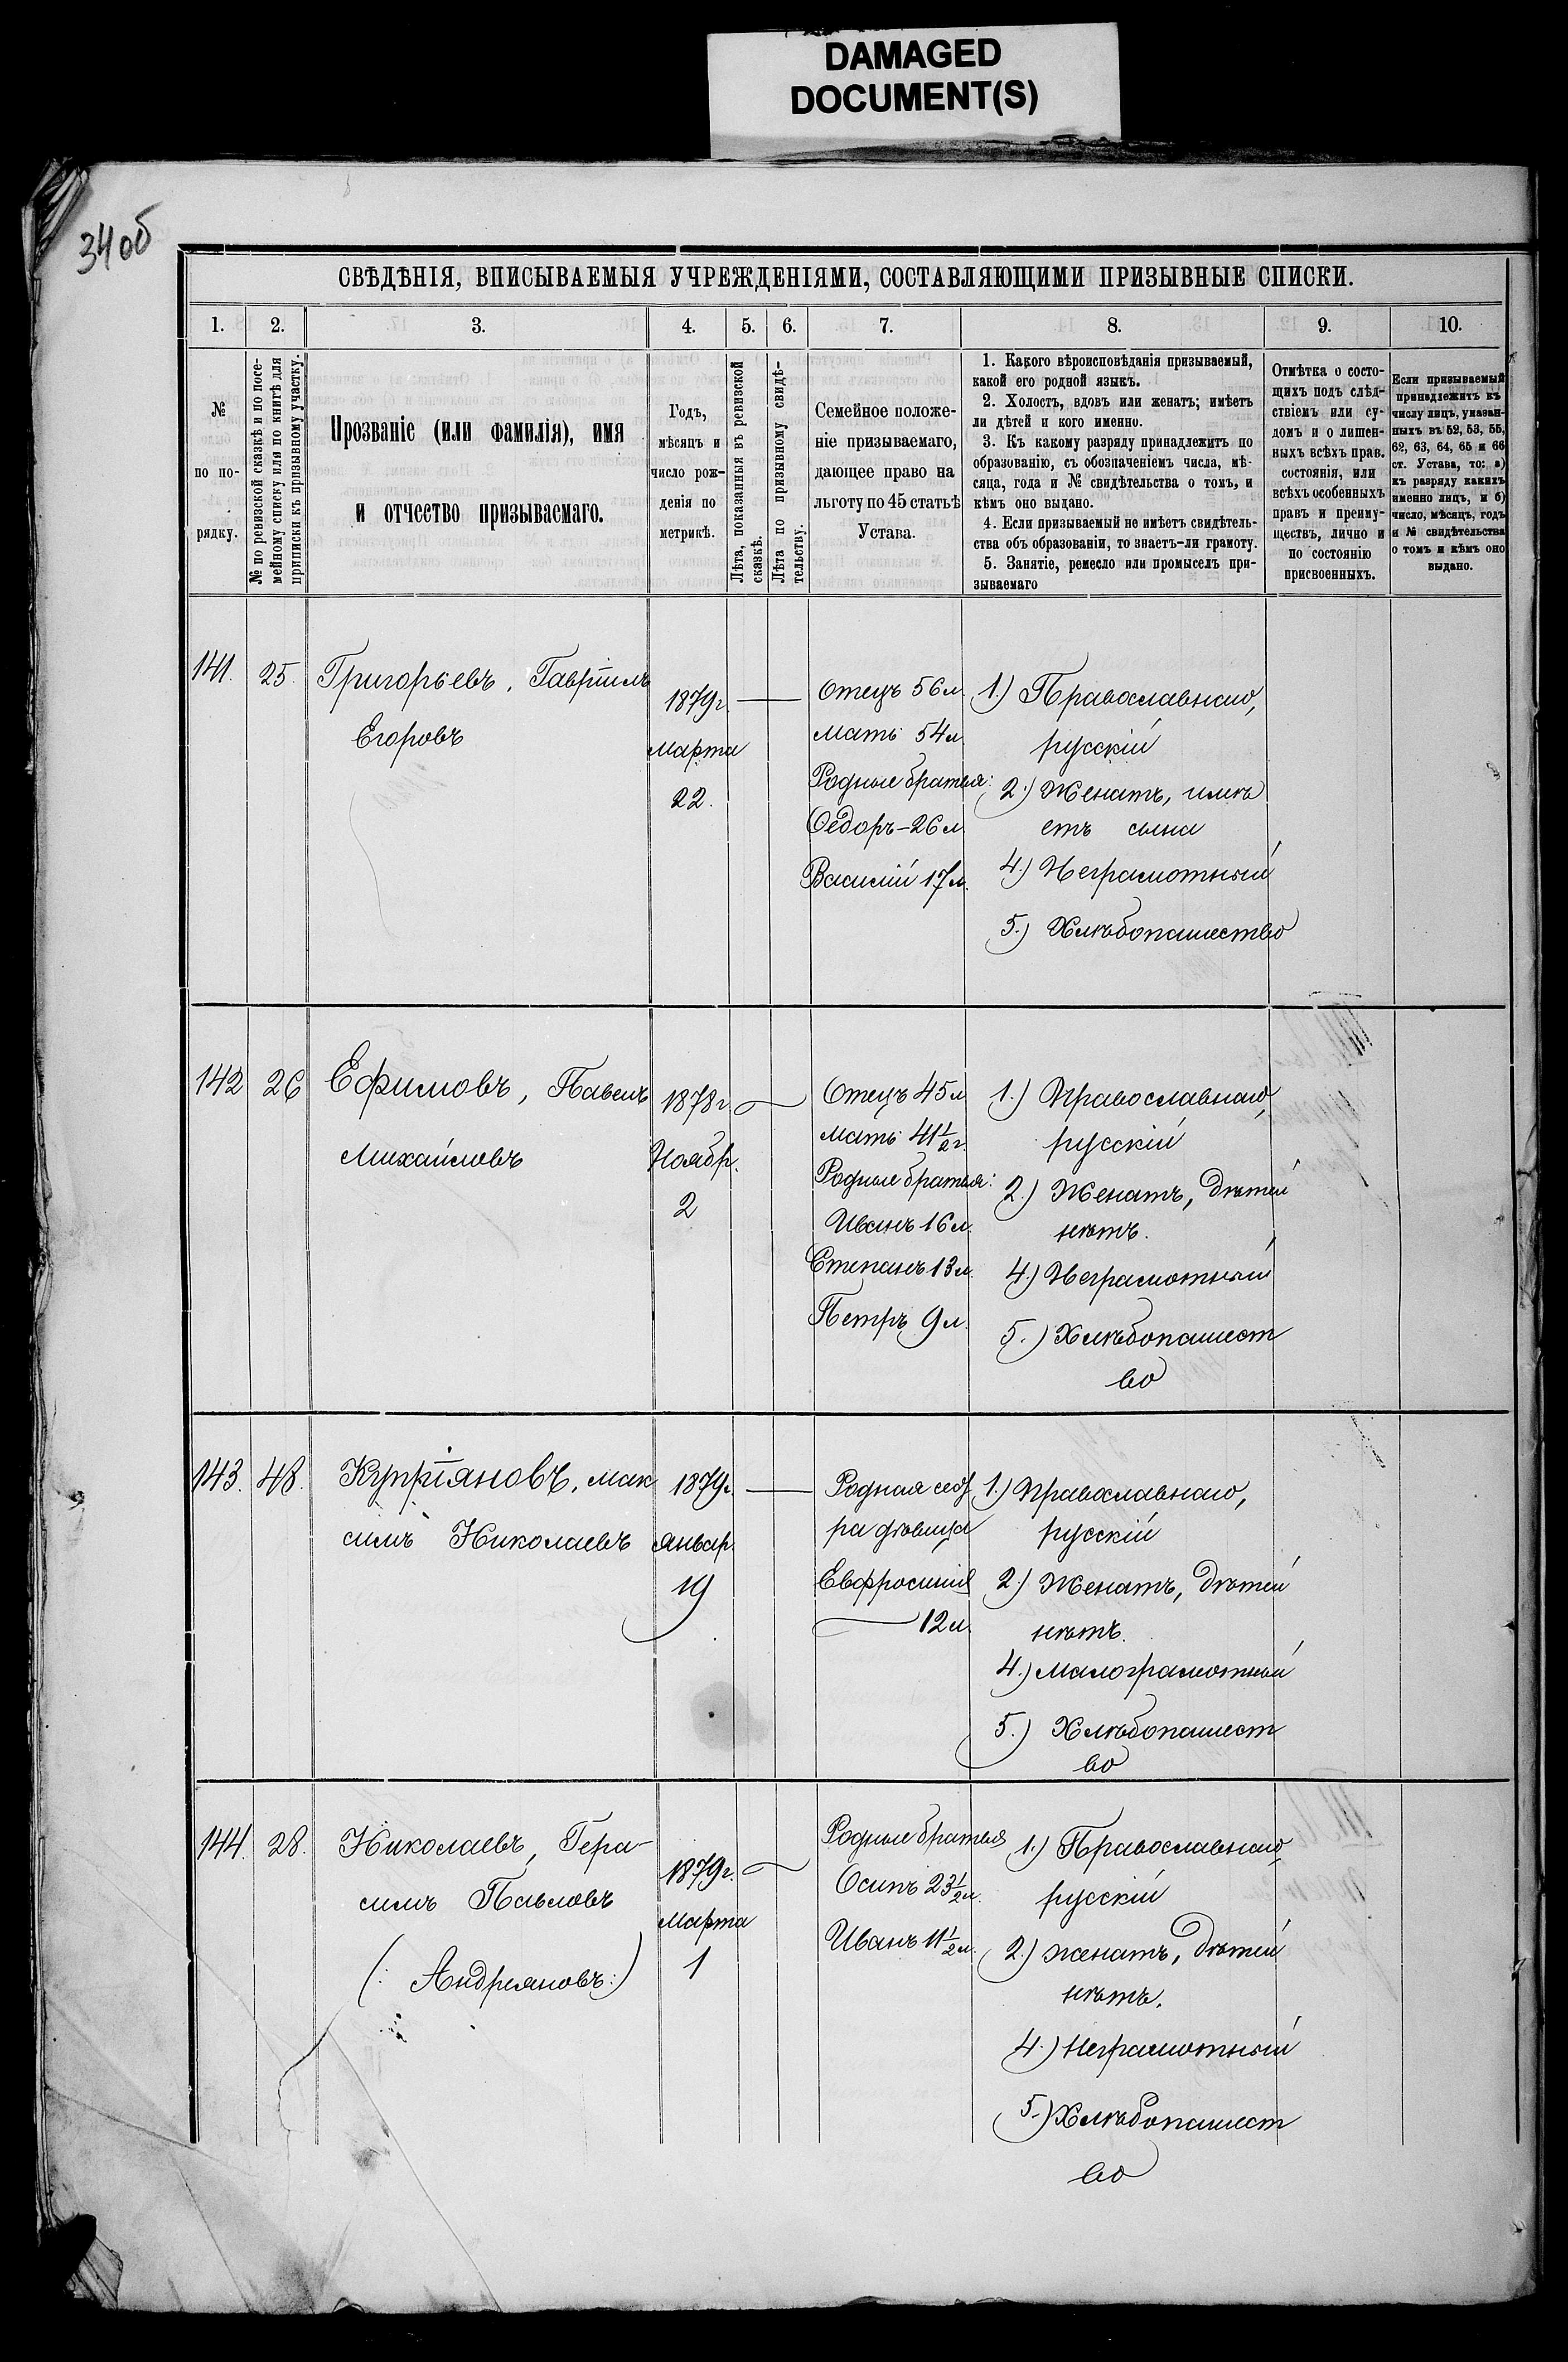 DAMAGED
DOCUMENT(S)
34об
СВѢДѢНІЯ, ВПИСЫВАЕМЫЯ УЧРЕЖДЕНІЯМИ, СОСТАВЛЯЮЩИМИ ПРИЗЫВНЫЕ СПИСКИ.
1. 2. 3. 4. 5. 6. 7. 8. 9. 10.
№
по по-
рядку.
№ по ревизской сказкѣ и по посе-
мейному списку или по книгѣ для
приписки къ призывному участку.
Прозваніе (или фамилія), имя
и отчество призываемаго.
Годъ,
мѣсяцъ и
число рож-
денія по
метрикѣ.
Лѣта, показанныя въ ревизской
сказкѣ.
Лѣта по призывному свидѣ-
тельству.
Семейное положе-
ніе призываемаго,
дающее право на
льготу по 45 статьѣ
Устава.
1. Какого вѣроисповѣданія призываемый,
какой его родной языкъ.
2. Холостъ, вдовъ или женатъ; имѣетъ
ли дѣтей и кого именно.
3. Къ какому разряду принадлежитъ по
образованію, съ обозначеніемъ числа, мѣ-
сяца, года и № свидѣтельства о томъ, и
кѣмъ оно выдано.
4. Если призываемый не имѣетъ свидѣтель-
ства объ образованіи, то знаетъ-ли грамоту.
5. Занятіе, ремесло или промыселъ при-
зываемаго
Отмѣтка о состо-
щихъ подъ слѣд-
ствіемъ или су-
домъ и о лишен-
ныхъ всѣхъ прав.
состоянія, или
всѣхъ особенныхъ
правъ и преиму-
ществъ, лично и
по состоянію
присвоенныхъ.
Если призываемый
принадлежитъ къ
числу лицъ, указан-
ныхъ въ 52, 53, 55,
62, 63, 64, 65 и 66
ст. Устава, то: а)
къ разряду какихъ
именно лицъ, и б)
число, мѣсяцъ, годъ
и № свидѣтельства
о томъ и кѣмъ оно
выдано.
141. 25. Григорьевъ, Гавріилъ
Егоровъ
1879г.
марта
22.
Отецъ 56 л.
мать 54 л.
Родные братья:
Ѳедоръ – 26 л.
Василій 17 л.
1.) Православнаго,
русскій
2.) Женатъ, имѣ
етъ сына
4.) Неграмотный
5.) Хлѣбопашество
142 26 Ефимовъ, Павелъ
Михайловъ
1878г.
Ноябр.
2
Отецъ 45 л
мать 41 1/2 г.
Родные братья:
Иванъ 16 л.
Степанъ 13 л.
Петръ 9 л.
1.) Православнаго,
русскій
2.) Женатъ, дѣтей
нѣтъ.
4.) Неграмотный
5.) Хлѣбопашест
во
143. 48. Купріяновъ, Мак
симъ Николаевъ
1879г.
январ.
19
Родная сест
ра дѣвица
Евфросинія
12 л.
1.) Православнаго,
русскій
2.) Женатъ, дѣтей
нѣтъ.
4.) Малограмотный
5.) Хлѣбопашест
во
144. 28. Николаевъ, Гера-
симъ Павловъ
(: Андреяновъ:)
1879г.
Марта
1
Родные братья
Осипъ 23 1/2 л.
Иванъ 11 1/2 л.
1.) Православнаго,
русскій
2.) женатъ, дѣтей
нѣтъ.
4.) Неграмотный
5.) Хлѣбопашест
во